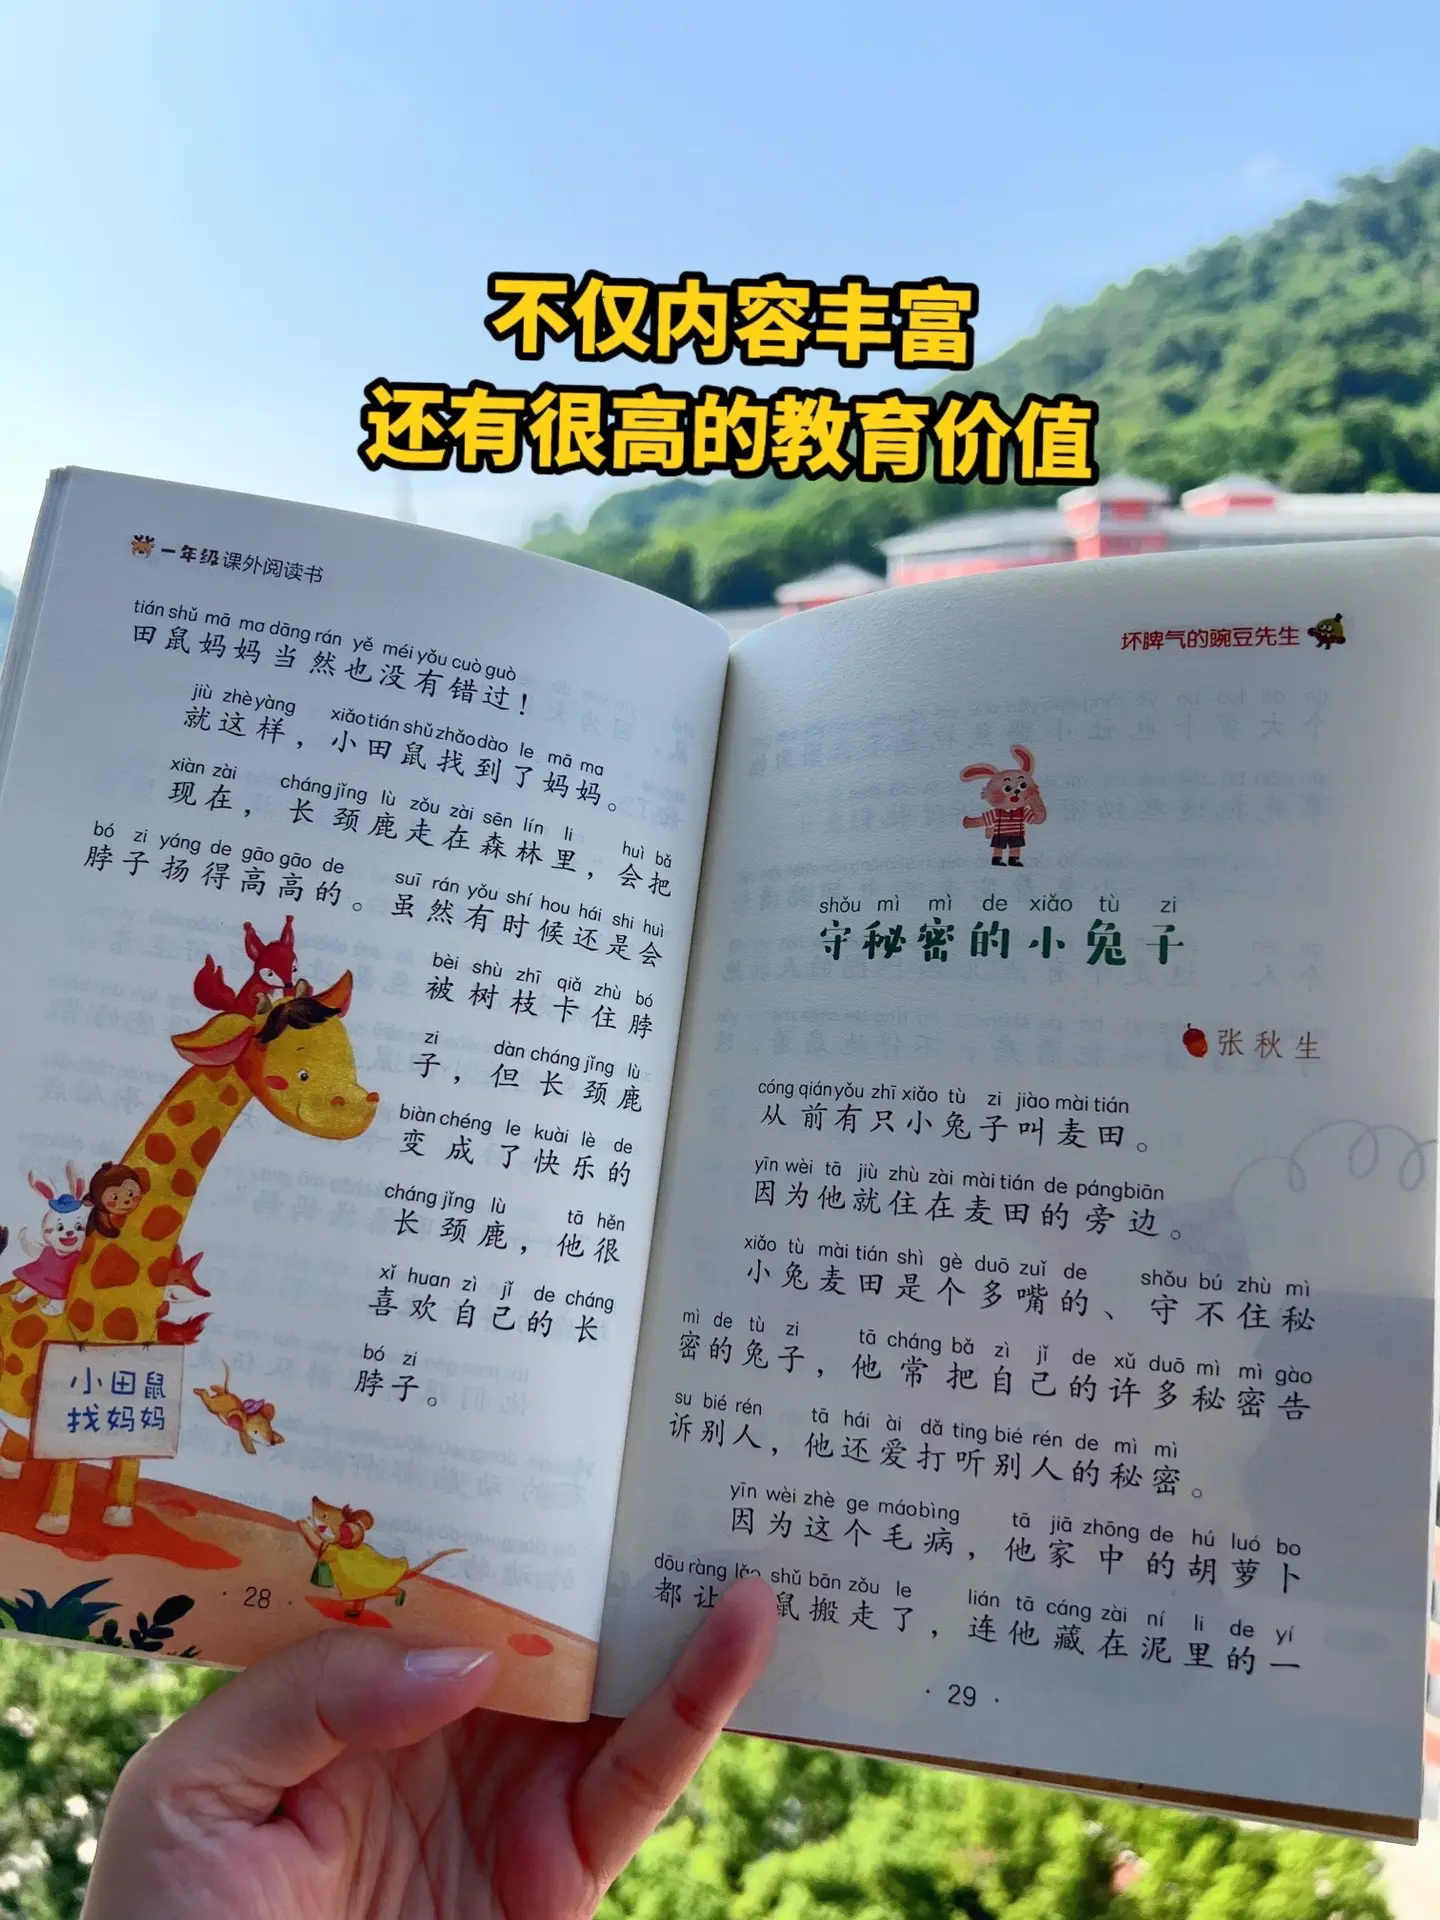 不仅内容丰富
还有很高的教育价值
一年级课外阅读书
tián shǔ mā ma dāng rán yě méi yǒu cuò guò
田鼠妈妈当然也没有错过！
jiù zhè yàng xiǎo tián shǔ zhǎo dào le mā ma
就这样，小田鼠找到了妈妈。
xiàn zài cháng jǐng lù zǒu zài sēn lín li huì bǎ
现在，长颈鹿走在森林里，会把
bó zi yáng de gāo gāo de suī rán yǒu shí hou hái shi huì
脖子扬得高高的。虽然有时候还是会
bèi shù zhī qiǎ zhù bó
被树枝卡住脖
zi dàn cháng jǐng lù
子，但长颈鹿
biàn chéng le kuài lè de
变成了快乐的
cháng jǐng lù tā hěn
长颈鹿，他很
xǐ huan zì jǐ de cháng
喜欢自己的长
bó zi
脖子。
小田鼠
找妈妈
· 28 ·
坏脾气的豌豆先生
shǒu mì mì de xiǎo tù zi
守秘密的小兔子
张秋生
cóng qián yǒu zhī xiǎo tù zi jiào mài tián
从前有只小兔子叫麦田。
yīn wèi tā jiù zhù zài mài tián de páng biān
因为他就住在麦田的旁边。
xiǎo tù mài tián shì gè duō zuǐ de shǒu bú zhù mì
小兔麦田是个多嘴的、守不住秘
mì de tù zi tā cháng bǎ zì jǐ de xǔ duō mì mì gào
密的兔子，他常把自己的许多秘密告
su bié rén tā hái ài dǎ ting bié rén de mì mì
诉别人，他还爱打听别人的秘密。
yīn wèi zhè ge máo bìng tā jiā zhōng de hú luó bo
因为这个毛病，他家中的胡萝卜
dōu ràng lǎo shǔ bān zǒu le lián tā cáng zài ní li de yí
都让鼠搬走了，连他藏在泥里的一
· 29 ·